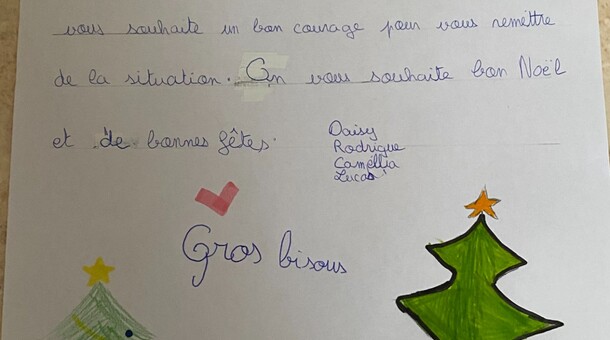 vous souhaite un bon courage pour vous remettre
de la situation. On vous souhaite bon Noël
et de bonnes fêtes.
Daisy
Rodrigue
Camellia
Lucas
Gros bisous